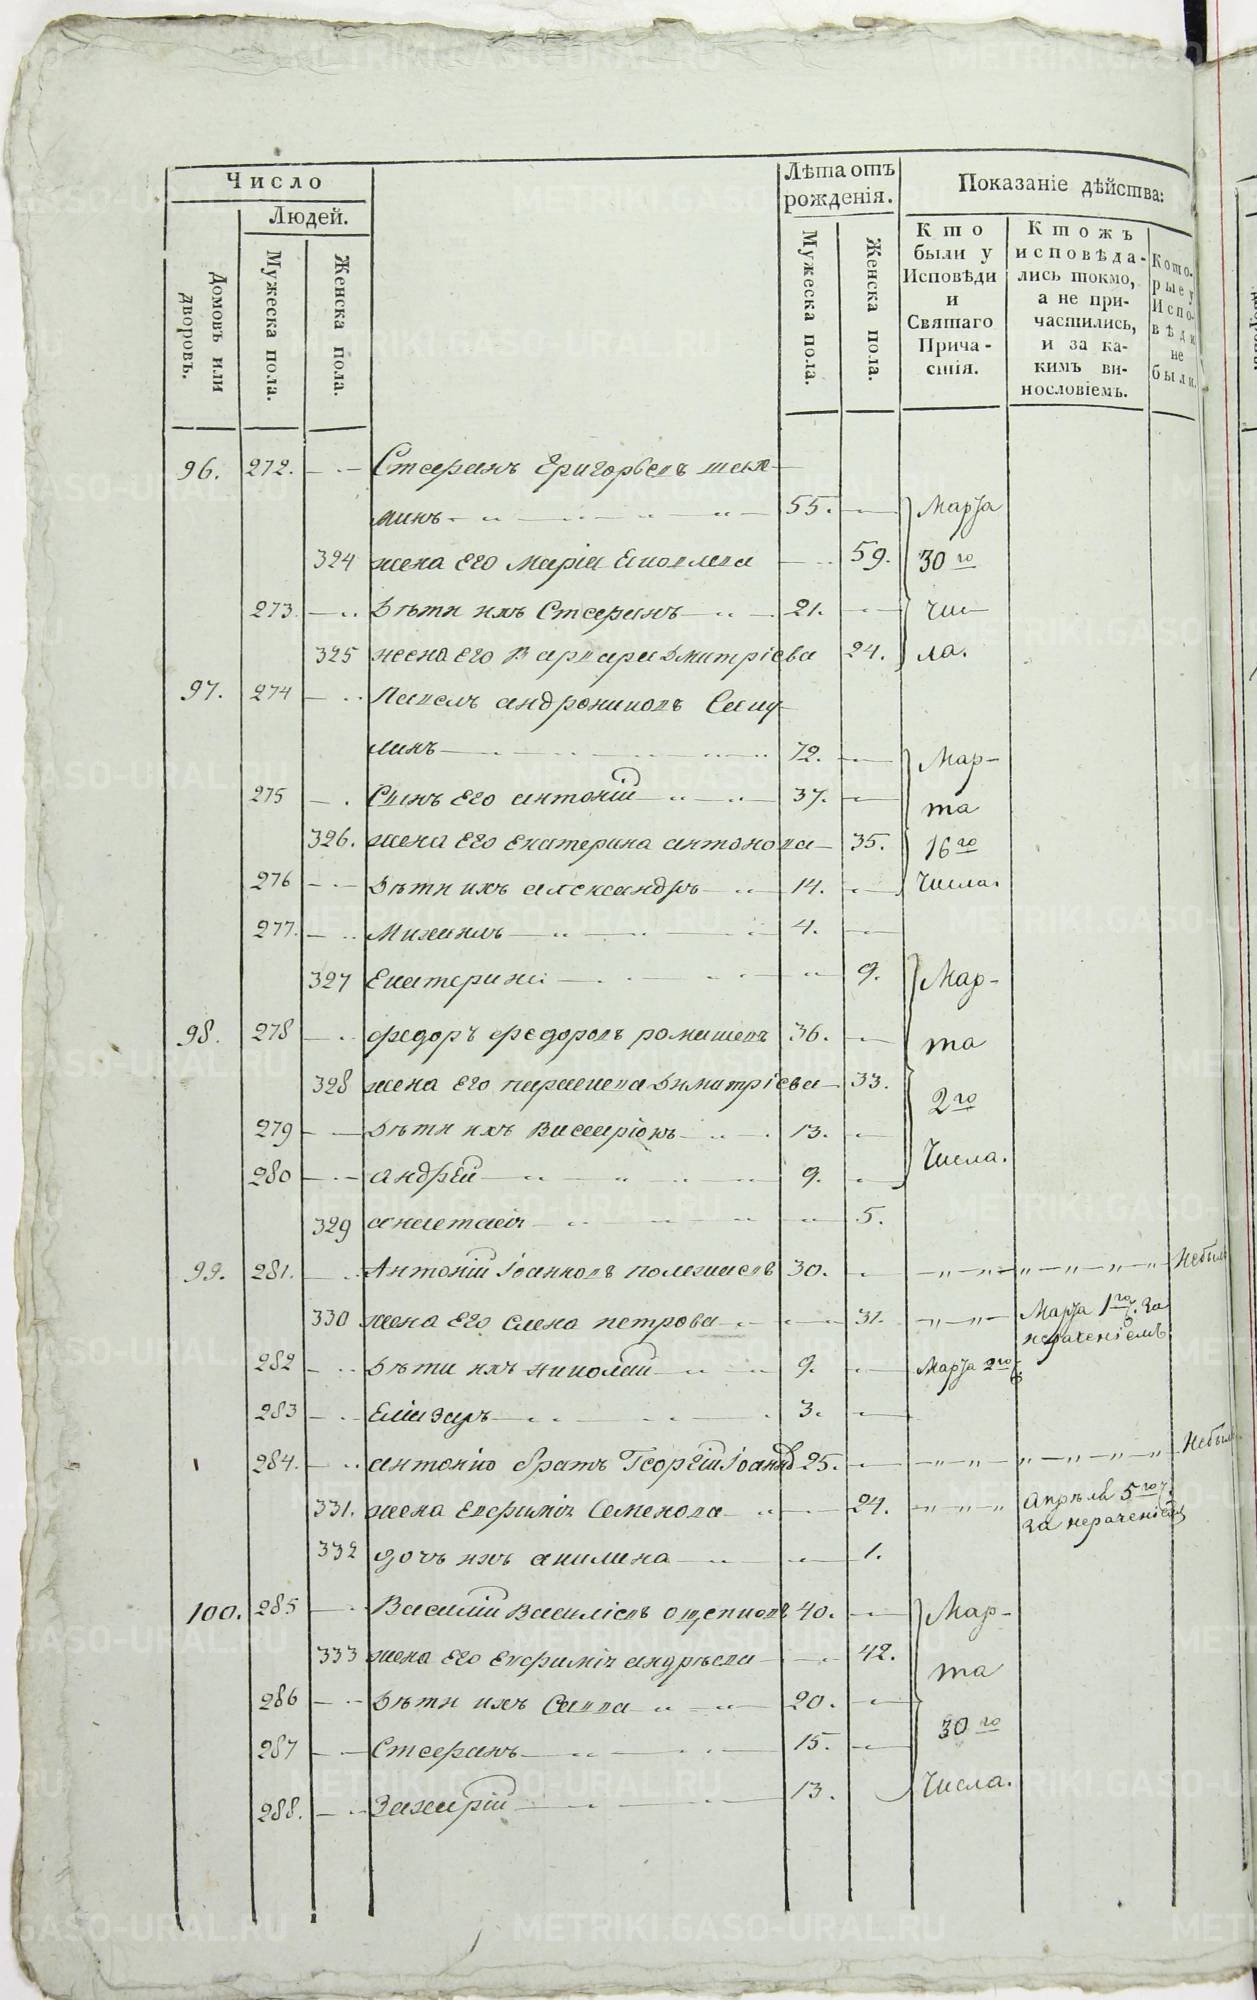 Число
Людей.
Домовъ или дворовъ.
Мужеска пола.
Женска пола.
Лѣта отъ рожденія.
Мужеска пола.
Женска пола.
Показаніе дѣйства:
Кто были у Исповѣди и Святаго Причастія.
Ктожъ исповѣдались токмо, а не причастились, и за какимъ винословіемъ.
Которые у Исповѣди не были.
96. 272. Стефанъ Григорьевъ
55. Марта
324 жена Его Марія 59. 30 го
273. Дѣти ихъ Стефанъ 21. Чис
325 жена Его Варвара Дмитріева 24. ла.
97. 274 Павелъ Андрониковъ
линъ 72. Мар-
275 Сынъ Его антоній 37. та
326. жена Его Екатерина антонова 35. 16 го
276 Дѣти ихъ александръ 14. Числа.
277. Михаилъ 4.
327 Екатерина 9. Мар-
98. 278 федоръ федоровъ 36. та
328 жена Его параскева Димитріева 33. 2 го
279 Дѣти ихъ Висаріонъ 13.
280 андрей 9. Числа.
329 анастасія 5.
99. 281. Антоній Іоанновъ 30. Небылъ
330 жена Его елена петрова 31. Марта 1 го ч. за
нераченіемъ
282 Дѣти ихъ николай 9. Марта 2 го ч
283 Еліазаръ 3.
284. антонію братъ Георгій Іоаннов 25. Небылъ
331. жена Евфимія Семенова 24. апрѣля 5 го ч.
за нераченіем
332 дочь ихъ акилина 1.
100. 285 Василій Василіевъ ощепковъ 40. Мар-
333 жена Его Евфимія андрѣева 42. та
286 Дѣти ихъ Савва 20.
30 го
287 Стефанъ 15.
288. Захарій 13. Числа.
METRIKI.GASO-URAL.RU